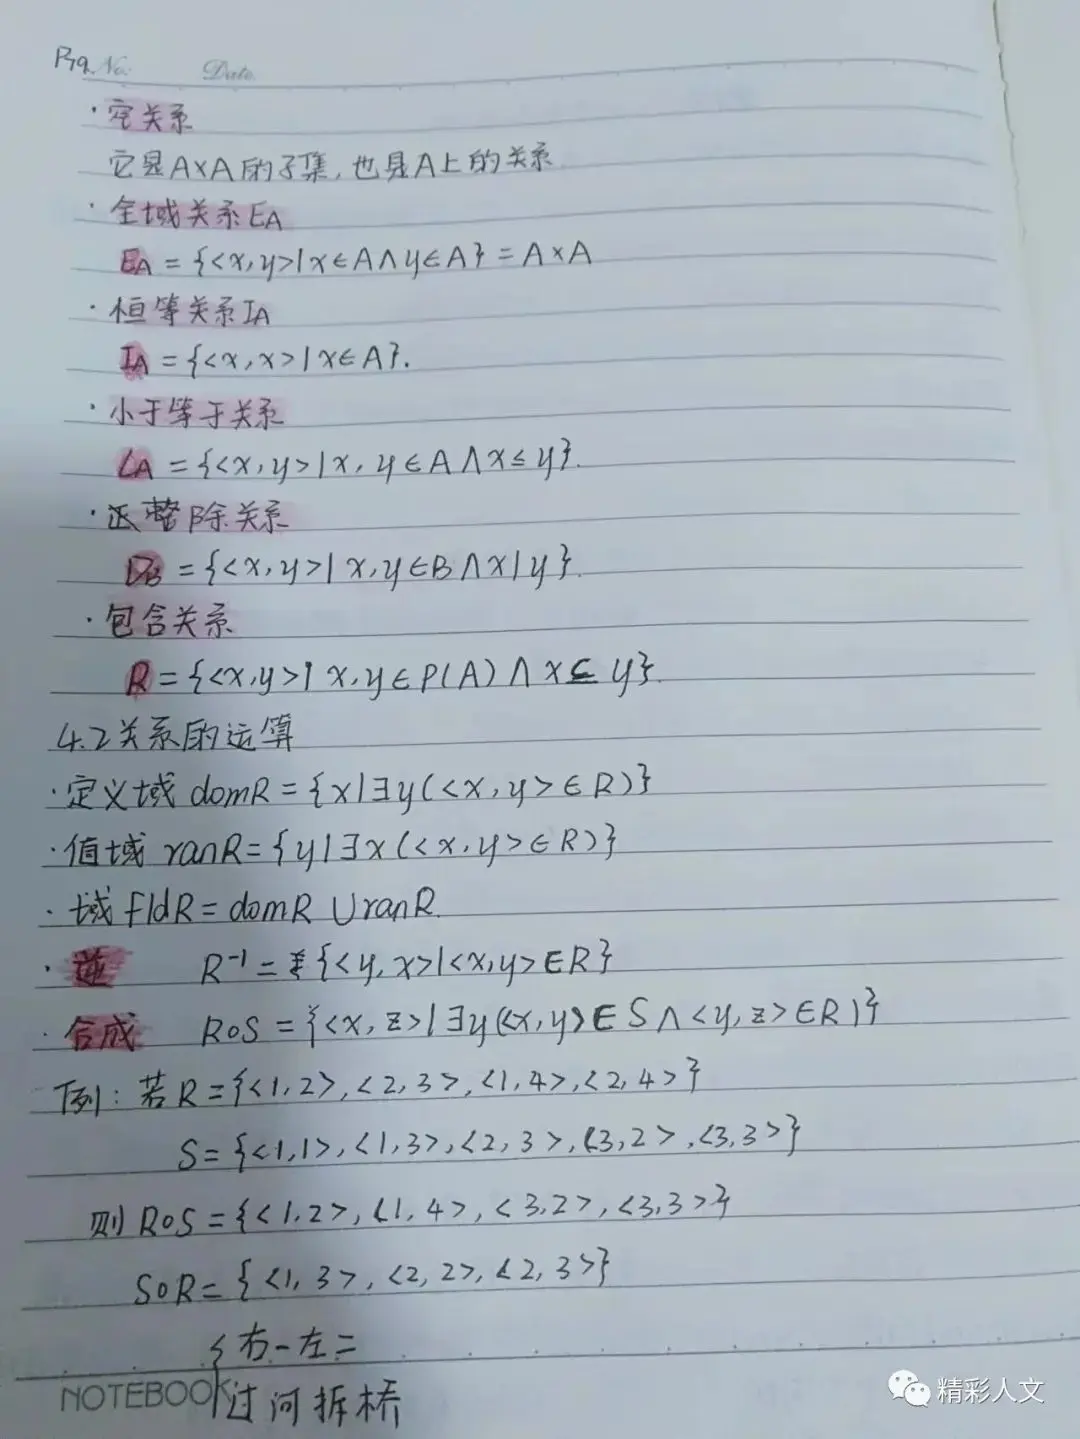 P79. No. Date.
·空关系
它是A×A的子集,也是A上的关系
·全域关系EA
EA = {<x,y>|x∈A∧y∈A} = A×A
·恒等关系IA
IA = {<x,x>|x∈A}.
·小于等于关系
LA = {<x,y>|x,y∈A∧x≤y}.
·整除关系
DB = {<x,y>|x,y∈B∧x|y}.
·包含关系
R = {<x,y>|x,y∈P(A)∧x⊆y}.
4.2关系的运算
·定义域 domR = {x|∃y(<x,y>∈R)}
·值域 ranR = {y|∃x(<x,y>∈R)}
·域 fldR = domR ∪ ranR.
·逆 R⁻¹ = {<y,x>|<x,y>∈R}
·合成 R∘S = {<x,z>|∃y(<x,y>∈S∧<y,z>∈R)}
例:若R = {<1,2>,<2,3>,<1,4>,<2,4>}
S = {<1,1>,<1,3>,<2,3>,<3,2>,<3,3>}
则 R∘S = {<1,2>,<1,4>,<3,2>,<3,3>}
S∘R = {<1,3>,<2,2>,<2,3>}
{右-左=
NOTEBOOK 过河拆桥
精彩人文